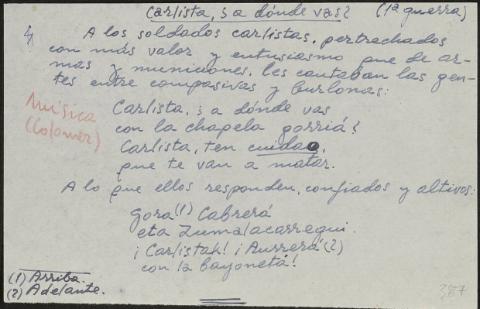 Carlista, ¿a dónde vas? (1ª guerra)
A los soldados carlistas, pertrechados
con más valor y entusiasmo que de ar-
mas y municiones, les cantaban las gen-
tes entre compasivas y burlonas:
Música
(Colomer)
Carlista, ¿a dónde vas
con la chapela gorriá?
Carlista, ten cuidao,
que te van a matar.
A lo que ellos responden, confiados y altivos:
Gora (1) Cabrerá
eta Zumalacarregui.
¡Carlistak! ¡Aurrerá (2)
con la bayonetá!
(1) Arriba.
(2) Adelante.
387